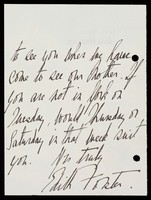 to see you when my [?]
come to see our Mother. If
you are not in [?] on
Tuesday, would Thursday or
Saturday in that week suit
you. Yrs truly
Edith Foster.